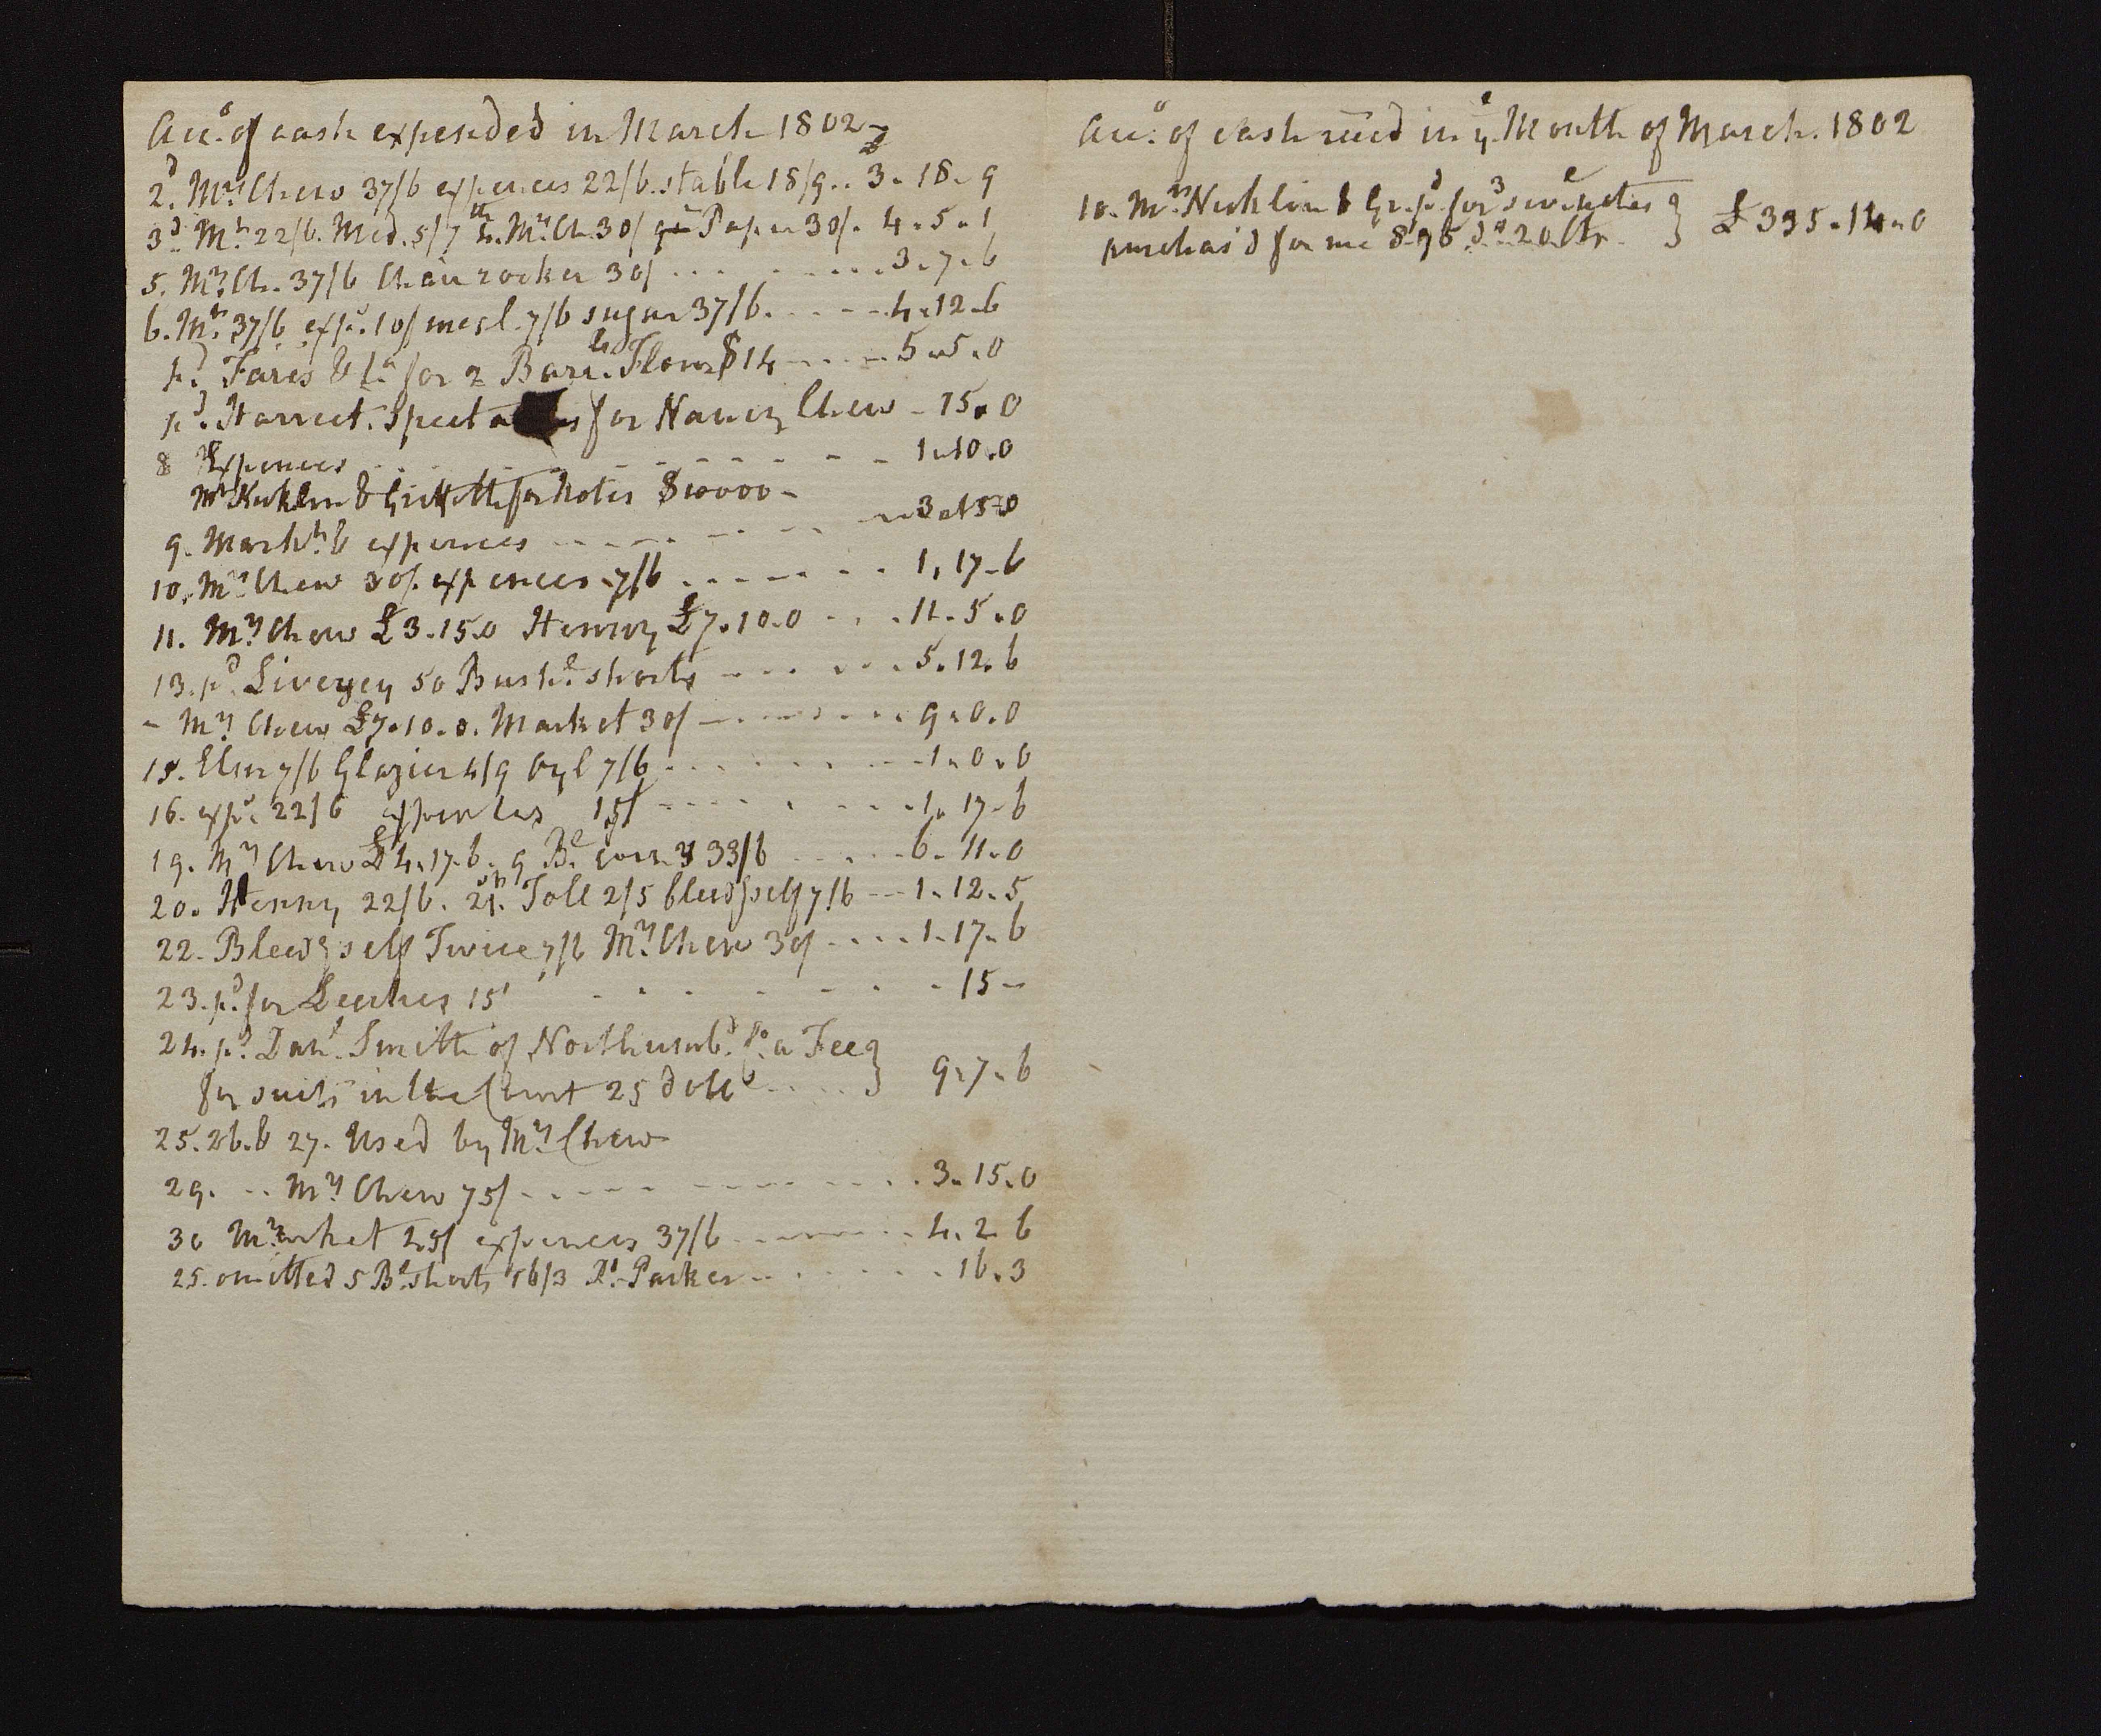 Acc.o of cash expended in March 1802
2.d Mrs Chew 37/6 expences 22/6. stable 18/9.. 3. 18. 9
3.d Mrs 22/6. Med. 5/7 4th. Mrs Ch. 30/ Paper 30/. 4. 5. 1
5. Mrs Ch. 37/6 Chair rocker 30/ ... 3. 7. 6
6. Mrs 37/6 exps. 10/ mesl. 7/6 sugar 37/6. ... 4. 12. 6
p.d Faries & Co for 2 Barrls. Flour $14 ... 5. 5. 0
p.d Harriet. Spectacles for Nancy Chew - 15. 0
8 Expences ... 1. 10. 0
Mrs Nicklin & Griffith for Notes $10000 -
9. Markt. & expences ... 3. 15. 0
10. Mrs Chew 30/. expences 7/6 ... 1. 17. 6
11. Mrs Chew £3. 15. 0 Henry £7. 10. 0 ... 11. 5. 0
13. p.d Livezey 50 Bushls. shorts ... 5. 12. 6
- Mrs Chew £7. 10. 0. Market 30/ ... 9. 0. 0
15. 7/6 Glazier 4/9 Oyl 7/6 ... 1. 0. 0
16. exps. 22/6 15/ ... 1. 17. 6
19. Mrs Chew £4. 17. 6. 9 Bs. corn 33/6 ... 6. 11. 0
20. Henry 22/6. 21st. Toll 2/5 bleedg self 7/6 -- 1. 12. 5
22. Bleedg self Twice 7/6 Mrs Chew 30/ .... 1. 17. 6
23. p.d for Leeches 15/ ... 15 -
24. p.d Danl. Smith of Northumbd. for a Fee }
for suits in the Court 25 dolls .... } 9. 7. 6
25. 26. & 27. Used by Mrs Chew
29. .. Mrs Chew 75/ ... 3. 15. 0
30 Market 45/ expences 37/6 ... 4. 2. 6
25. omitted 5 Bs. shorts 16/3 Parker ... 16. 3
Acc.o of cash recd in ye. Month of March. 1802
10. Mrs. Nicklin & Gr. pd. for 3 notes }
purchas'd for me 8. 96 ds. 20 Cts. } £ 335. 14. 0